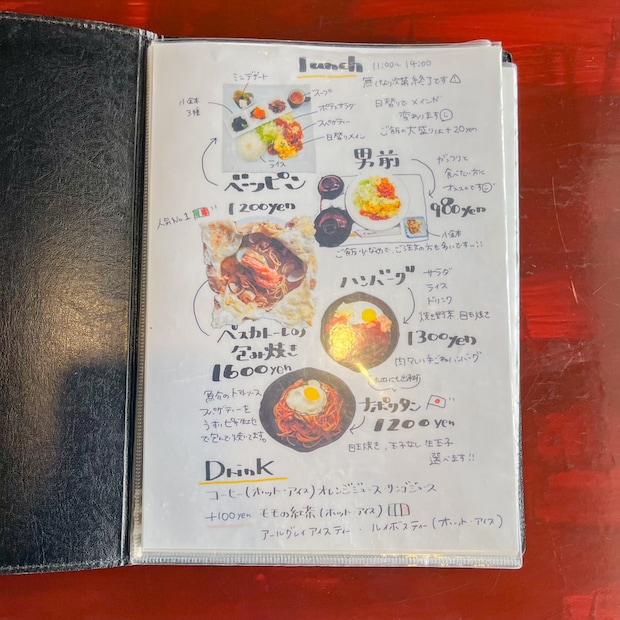 Lunch 11:00~14:00
無くなり次第終了です
日替りでメインが
変わります
ご飯の大盛りは+20yen
ミニデザート
スープ
小鉢
3種
ポテトサラダ
スパゲティー
日替りメイン
ライス
ベッピン
1200yen
男前
ガッツリと
食べたい方に
オススメです
980yen
小鉢
ご飯少なめで、ご注文の方も多いですー!!
人気No.1
ペスカトーレの
包み焼き
1600yen
魚介のトマトソース
スパゲティーを
うすいピザ生地
で包んで焼いてます。
ハンバーグ
サラダ
ライス
ドリンク
焼き野菜 目玉焼き
1300yen
肉々しい手ごねハンバーグ
ナポリタン
1200yen
目玉焼き、玉子なし 生玉子
選べます!!
Drink
コーヒー(ホット・アイス)オレンジジュース リンゴジュース
+100yen ももの紅茶(ホット アイス)
アールグレイ アイスティー ・ ルイボスティー(ホット・アイス)